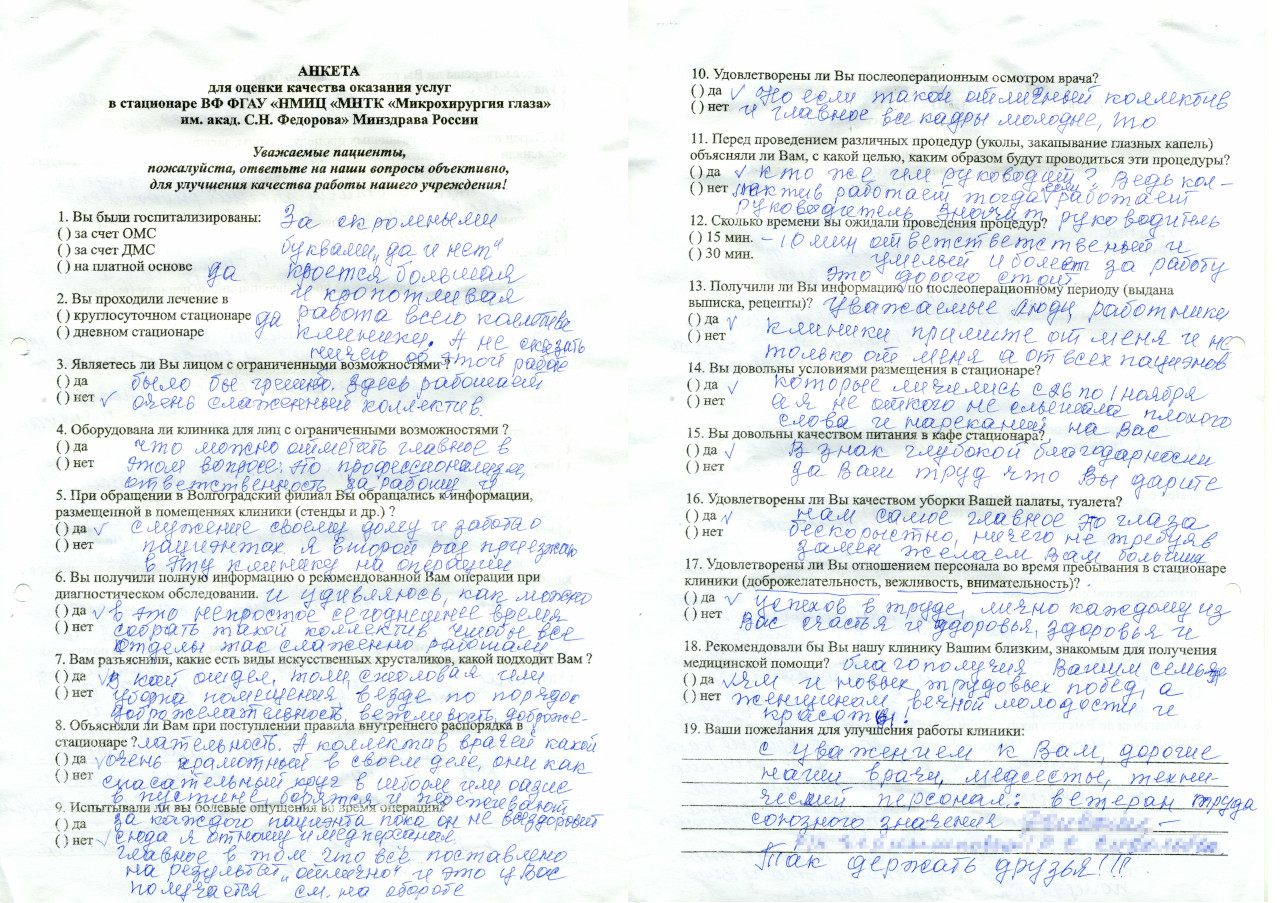 АНКЕТА
для оценки качества оказания услуг
в стационаре ВФ ФГАУ «НМИЦ «МНТК «Микрохирургия глаза»
им. акад. С.Н. Федорова» Минздрава России
Уважаемые пациенты,
пожалуйста, ответьте на наши вопросы объективно,
для улучшения качества работы нашего учреждения!
1. Вы были госпитализированы: За скромными
( ) за счет ОМС
( ) за счет ДМС буквами „да и нет"
( ) на платной основе да кроется большая
и кропотливая
2. Вы проходили лечение в
( ) круглосуточном стационаре да работа всего коллектива
( ) дневном стационаре клиники. А не сказать
ничего об этой работе
3. Являетесь ли Вы лицом с ограниченными возможностями ?
( ) да было бы грешно. Здесь работает
( ) нет ✓ очень слаженный коллектив.
4. Оборудована ли клиника для лиц с ограниченными возможностями ?
( ) да что можно отметить главное в
( ) нет этом вопросе: это профессионализм,
ответственность за работу и
5. При обращении в Волгоградский филиал Вы обращались к информации,
размещенной в помещениях клиники (стенды и др.) ?
( ) да ✓ служение своему долгу и забота о
( ) нет пациентах. Я второй раз приезжаю
в эту клинику на операции
6. Вы получили полную информацию о рекомендованной Вам операции при
диагностическом обследовании. и удивляюсь, как можно
( ) да ✓ в это непростое сегоднешнее время
( ) нет собрать такой коллектив чтобы все
отделы так слаженно работали
7. Вам разъясняли, какие есть виды искусственных хрусталиков, какой подходит Вам ?
( ) да ✓ В кой отдел, толи столовая или
( ) нет уборка помещения везде по порядок
доброжелательность, вежливость, доброже-
8. Объясняли ли Вам при поступлении правила внутреннего распорядка в
стационаре ? лательность. А коллектив врачей какой
( ) да ✓ очень грамотный в своем деле, они как
( ) нет спасательный круг в шторм или оазис
в пустыне борятся и
9. Испытывали ли вы болевые ощущения во время операции?
( ) да за каждого пациента пока он не выздоровеет
( ) нет ✓ сюда я отношу и медперсонал.
главное в том что всё поставлено
на результат „отлично" и это у Вас
получается см. на обороте
10. Удовлетворены ли Вы послеоперационным осмотром врача?
( ) да ✓ Но если такой отличный коллектив
( ) нет и главное все кадры молодые, то
11. Перед проведением различных процедур (уколы, закапывание глазных капель)
объясняли ли Вам, с какой целью, каким образом будут проводиться эти процедуры?
( ) да ✓ кто же им руководит? Ведь кол-
( ) нет лектив работает тогда если работает
руководитель значит руководитель
12. Сколько времени вы ожидали проведения процедур?
( ) 15 мин. – 10 мин ответственный и
( ) 30 мин. умелый и болеет за работу
это дорого стоит
13. Получили ли Вы информацию по послеоперационному периоду (выдана
выписка, рецепты)? Уважаемые люди работники
( ) да ✓ клиники примите от меня и не
( ) нет только от меня а от всех пациэнов
14. Вы довольны условиями размещения в стационаре?
( ) да ✓ которые личились с 26 по 1 ноября
( ) нет а я не откого не слышала плохого
слова и нареканий на Вас
15. Вы довольны качеством питания в кафе стационара?
( ) да ✓ В знак глубокой благодарности
( ) нет за Ваш труд что Вы дарите
16. Удовлетворены ли Вы качеством уборки Вашей палаты, туалета?
( ) да ✓ нам самое главное это глаза
( ) нет бескорыстно, ничего не требуяв
замен желаем Вам больших
17. Удовлетворены ли Вы отношением персонала во время пребывания в стационаре
клиники (доброжелательность, вежливость, внимательность)?
( ) да ✓ успехов в труде, лично каждому из
( ) нет Вас счастья и здоровья, здоровья и
18. Рекомендовали бы Вы нашу клинику Вашим близким, знакомым для получения
медицинской помощи? благополучия Вашим семь-
( ) да ✓ ям и новых трудовых побед, а
( ) нет женщинам вечной молодости и
красоты!
19. Ваши пожелания для улучшения работы клиники:
с уважением к Вам, дорогие
наши врачи, медсесты, техни-
ческий персонал: ветеран труда
союзного значения –
Так держать друзья!!!